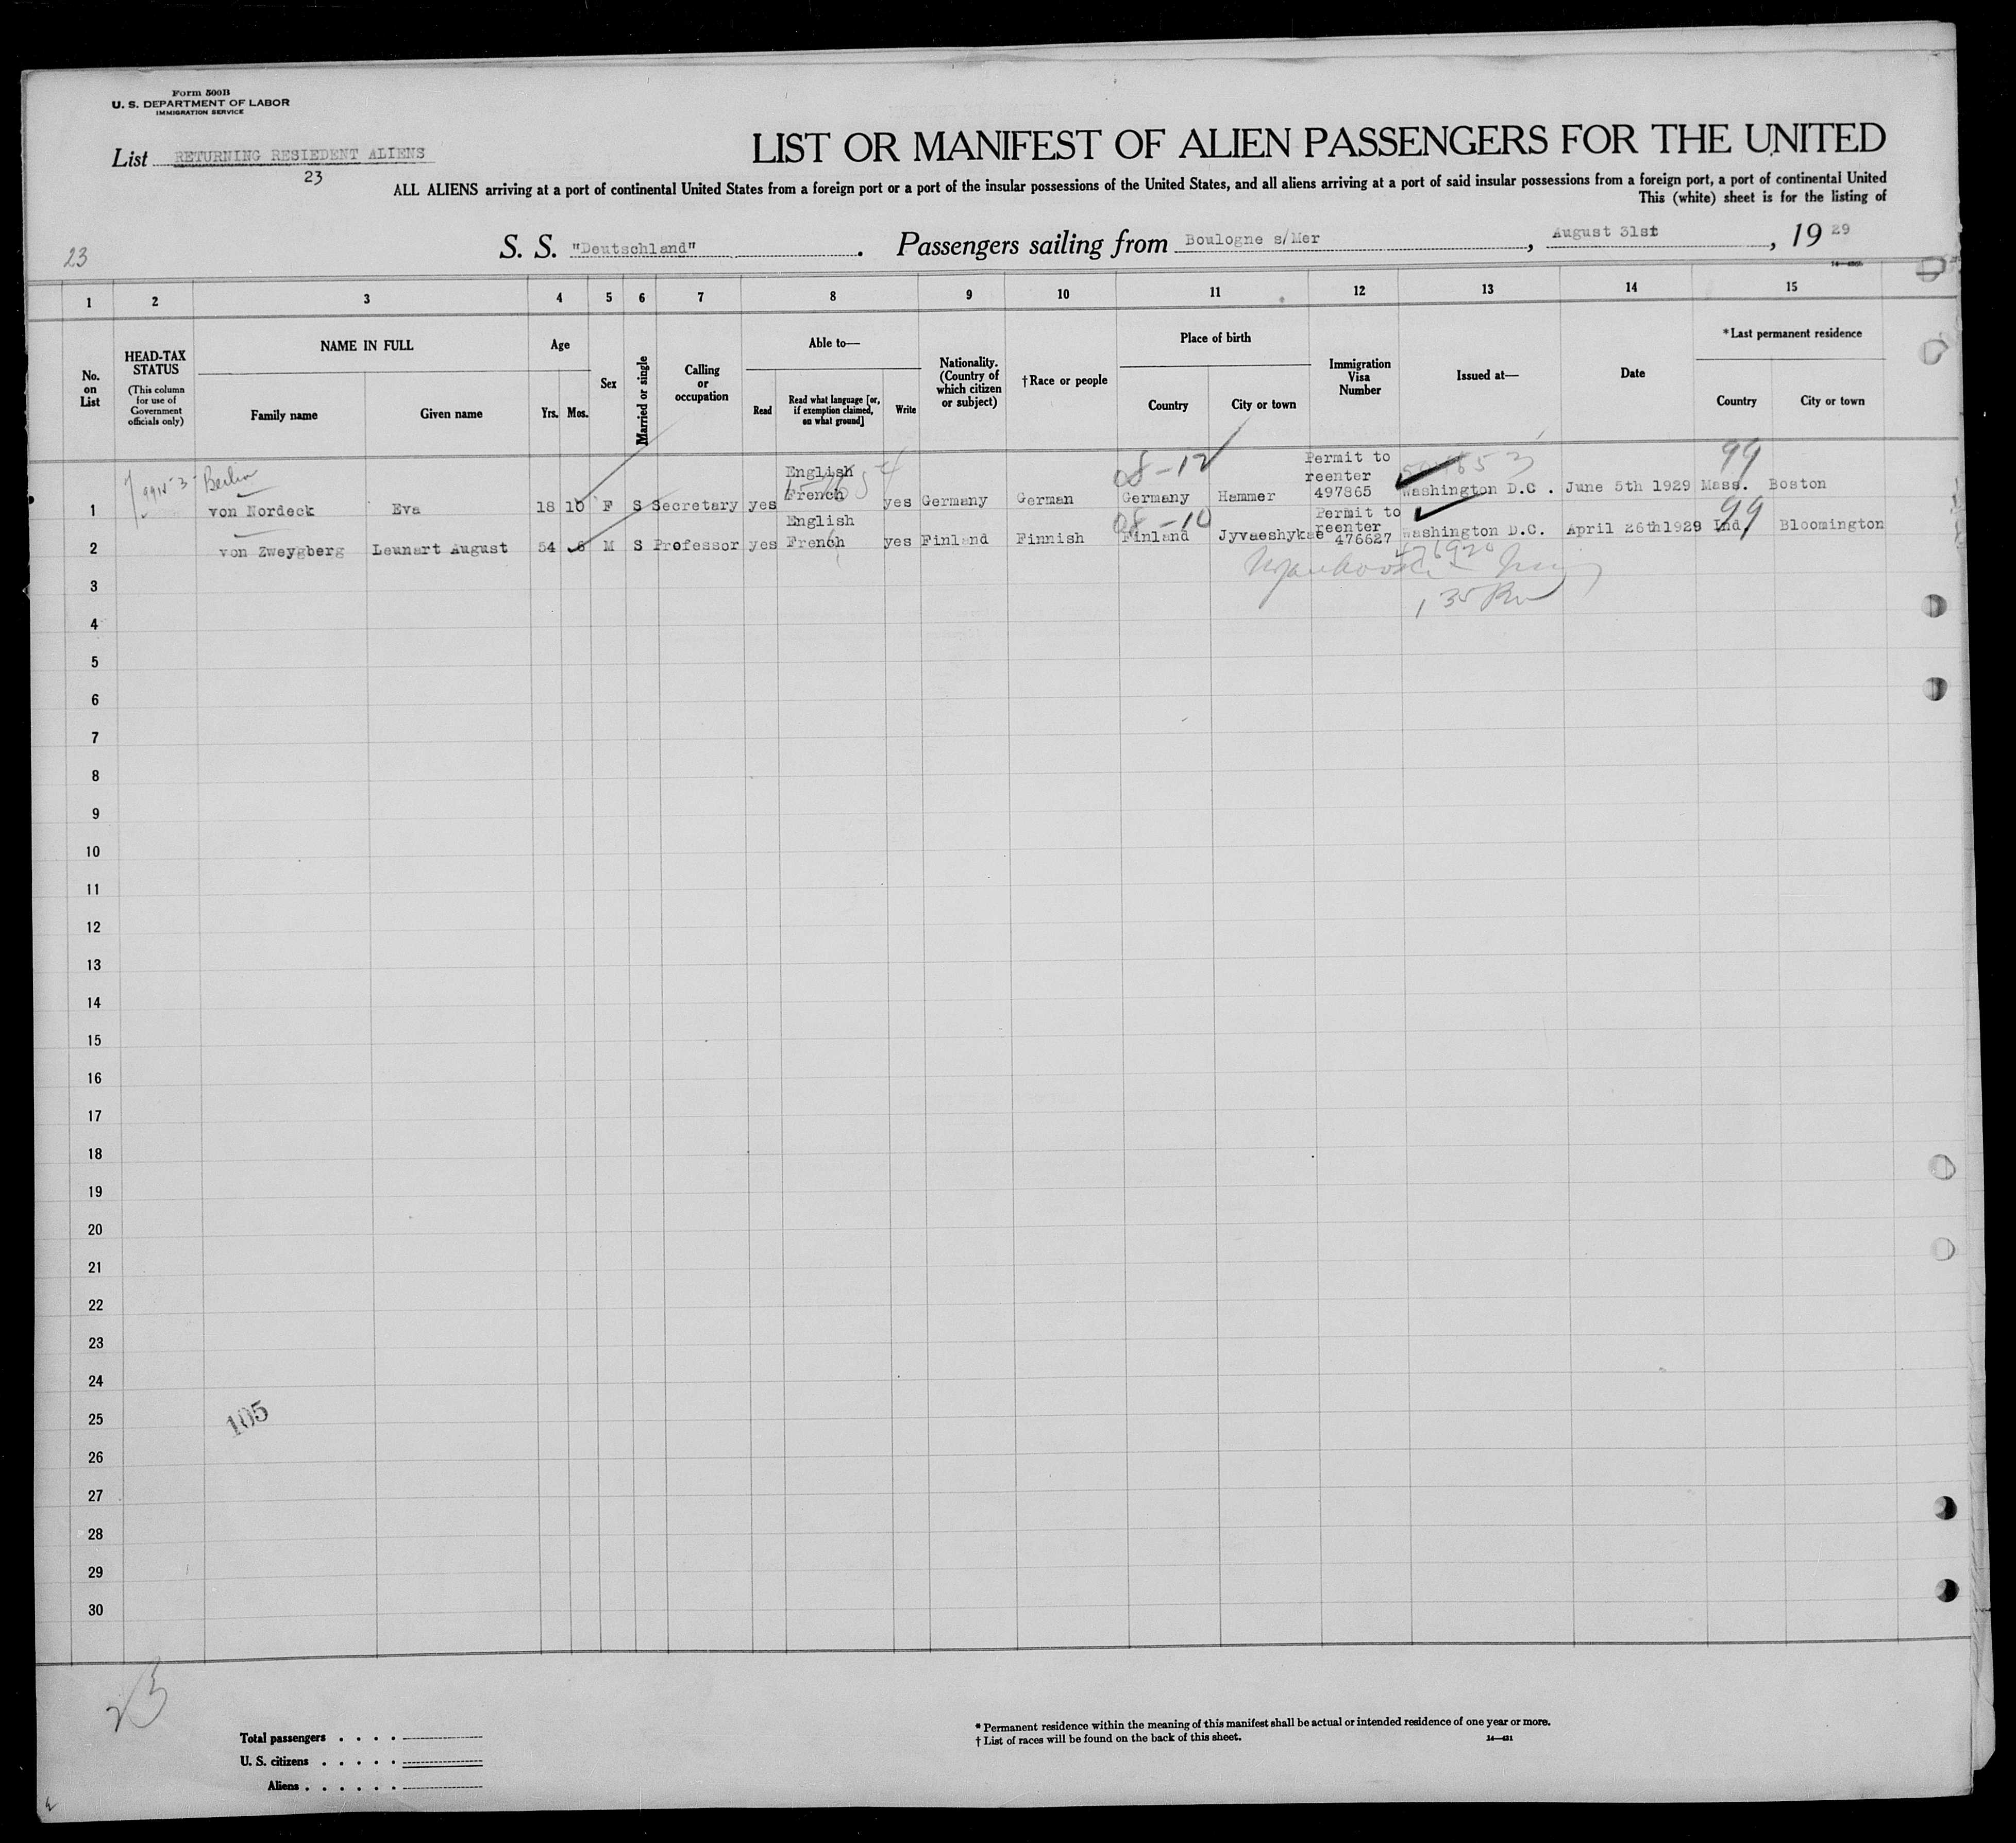 Form 500B
U. S. DEPARTMENT OF LABOR
IMMIGRATION SERVICE
List RETURNING RESIEDENT ALIENS
23
LIST OR MANIFEST OF ALIEN PASSENGERS FOR THE UNITED
ALL ALIENS arriving at a port of continental United States from a foreign port or a port of the insular possessions of the United States, and all aliens arriving at a port of said insular possessions from a foreign port, a port of continental United
This (white) sheet is for the listing of
23
S. S. "Deutschland" . Passengers sailing from Boulogne s/Mer , August 31st , 19 29
1 2 3 4 5 6 7 8 9 10 11 12 13 14 15
No. on List
HEAD-TAX STATUS
(This column for use of Government officials only)
NAME IN FULL
Family name Given name
Age
Yrs. Mos.
Sex
Married or single
Calling or occupation
Able to—
Read
Read what language [or, if exemption claimed, on what ground]
Write
Nationality. (Country of which citizen or subject)
†Race or people
Place of birth
Country City or town
Immigration Visa Number
Issued at—
Date
*Last permanent residence
Country City or town
Berlin
08-12
99
1 von Nordeck Eva 18 10 F S Secretary yes English French yes Germany German Germany Hammer Permit to reenter 497865 Washington D.C. June 5th 1929 Mass. Boston
08-10
99
2 von Zweygberg Leunart August 54 6 M S Professor yes English French yes Finland Finnish Finland Jyvaeshykae Permit to reenter 476627 Washington D.C. April 26th1929 Ind Bloomington
3
4
5
6
7
8
9
10
11
12
13
14
15
16
17
18
19
20
21
22
23
24
25
105
26
27
28
29
30
23
Total passengers . . . .
U. S. citizens . . . . .
Aliens . . . . . .
* Permanent residence within the meaning of this manifest shall be actual or intended residence of one year or more.
† List of races will be found on the back of this sheet.
14—421